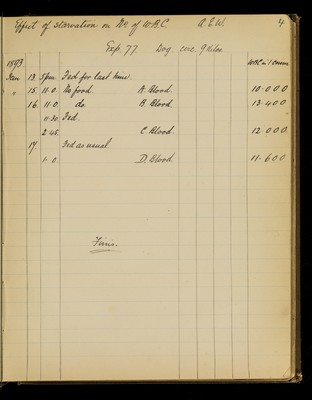 Effect of Starvation on No. of W.B.C. A.E.W. 4
Exp. 77 Dog. circ. 9 kilos.
1893 W.B.C. in 1 cmm
Jan 13. 5pm. Fed for last time.
" 15. 11.0. No food. A. Blood. 10.000
16. 11.0 do. B. Blood. 13.400
11.30. Fed.
2.45. C. Blood. 12.000.
17 Fed as usual.
1.0. D. Blood 11.600
Finis.